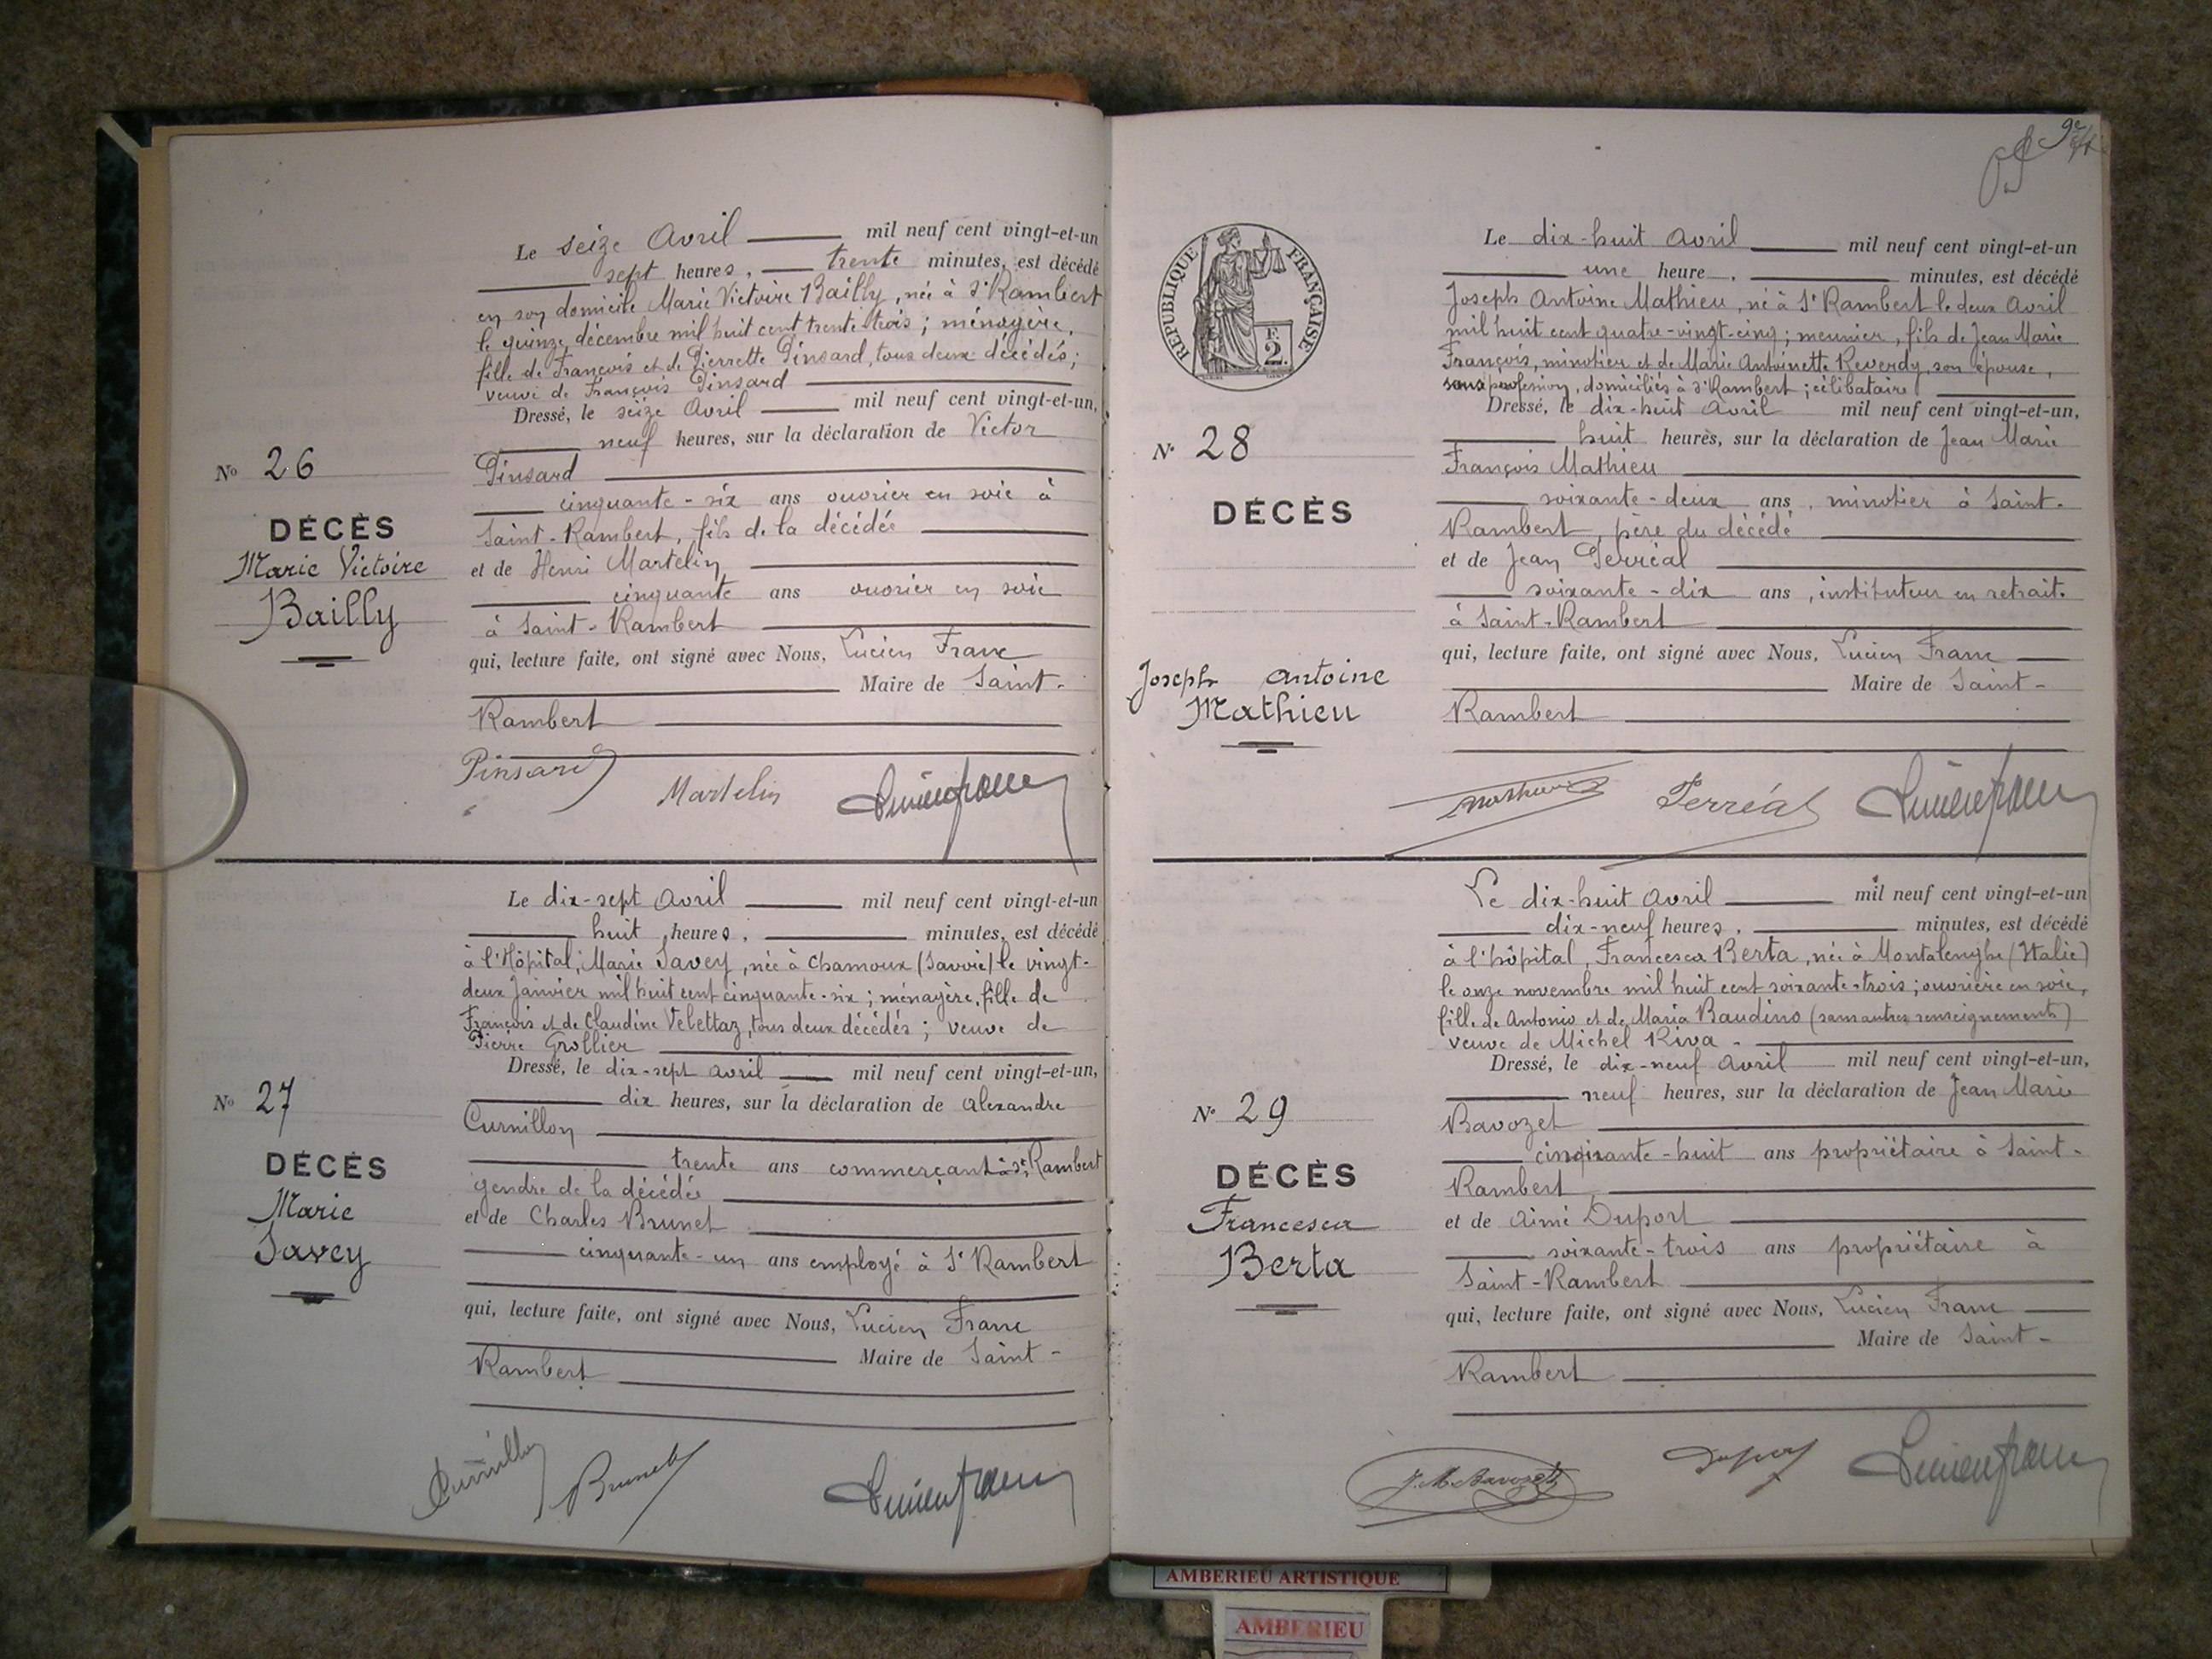 Le seize Avril mil neuf cent vingt-et-un
sept heures, trente minutes, est décédé
en son domicile Marie Victoire Bailly, née à St Rambert
le quinze décembre mil huit cent trente trois; ménagère,
fille de François et de Pierrette Pinsard, tous deux décédés;
veuve de François Pinsard
Dressé, le seize Avril mil neuf cent vingt-et-un,
neuf heures, sur la déclaration de Victor
No 26
Pinsard
cinquante-six ans ouvrier en soie à
DÉCÈS
Saint-Rambert, fils de la décédée
Marie Victoire
et de Henri Martelin
Bailly
cinquante ans ouvrier en soie
à Saint-Rambert
qui, lecture faite, ont signé avec Nous, Lucien Franc
Maire de Saint-
Rambert
Pinsard
Martelin
Lucien franc
Le dix-sept Avril mil neuf cent vingt-et-un
huit heures, minutes, est décédé
à l'Hôpital, Marie Savey, née à Chamoux (Savoie) le vingt-
deux Janvier mil huit cent cinquante-six; ménagère, fille de
François et de Claudine Vebettaz, tous deux décédés; veuve de
Pierre Grollier
Dressé, le dix-sept avril mil neuf cent vingt-et-un,
No 27
dix heures, sur la déclaration de Alexandre
Curnillon
DÉCÈS
trente ans commerçant à St Rambert
gendre de la décédée
Marie
et de Charles Brunet
Savey
cinquante-un ans employé à St Rambert
qui, lecture faite, ont signé avec Nous, Lucien Franc
Maire de Saint-
Rambert
Curnillon
Brunet
Lucien franc
9e
RÉPUBLIQUE FRANÇAISE
F.
2
Le dix-huit Avril mil neuf cent vingt-et-un
une heure, minutes, est décédé
Joseph Antoine Mathieu, né à St Rambert le deux Avril
mil huit cent quatre-vingt-cinq; meunier, fils de Jean Marie
François, minotier et de Marie Antoinette Reverdy, son épouse,
sans profession, domiciliés à St Rambert; célibataire
Dressé, le dix-huit Avril mil neuf cent vingt-et-un,
No 28
huit heures, sur la déclaration de Jean Marie
François Mathieu
DÉCÈS
soixante-deux ans, minotier à Saint-
Rambert, père du décédé
et de Jean Perréal
soixante-dix ans, instituteur en retraite
à Saint-Rambert
qui, lecture faite, ont signé avec Nous, Lucien Franc
Joseph Antoine
Maire de Saint-
Mathieu
Rambert
Mathieu
Perréal
Lucien franc
Le dix-huit Avril mil neuf cent vingt-et-un
dix-neuf heures, minutes, est décédé
à l'hôpital, Francesca Berta, née à Montalenghe (Italie)
le onze novembre mil huit cent soixante-trois; ouvrière en soie,
fille de Antonio et de Maria Baudino (sans autres renseignements)
veuve de Michel Riva
Dressé, le dix-neuf Avril mil neuf cent vingt-et-un,
No 29
neuf heures, sur la déclaration de Jean Marie
Bavozet
cinquante-huit ans propriétaire à Saint-
DÉCÈS
Rambert
Francesca
et de Aimé Duport
Berta
soixante-trois ans propriétaire à
Saint-Rambert
qui, lecture faite, ont signé avec Nous, Lucien Franc
Maire de Saint-
Rambert
J.M. Bavozet
Duport
Lucien franc
AMBERIEU ARTISTIQUE
AMBERIEU